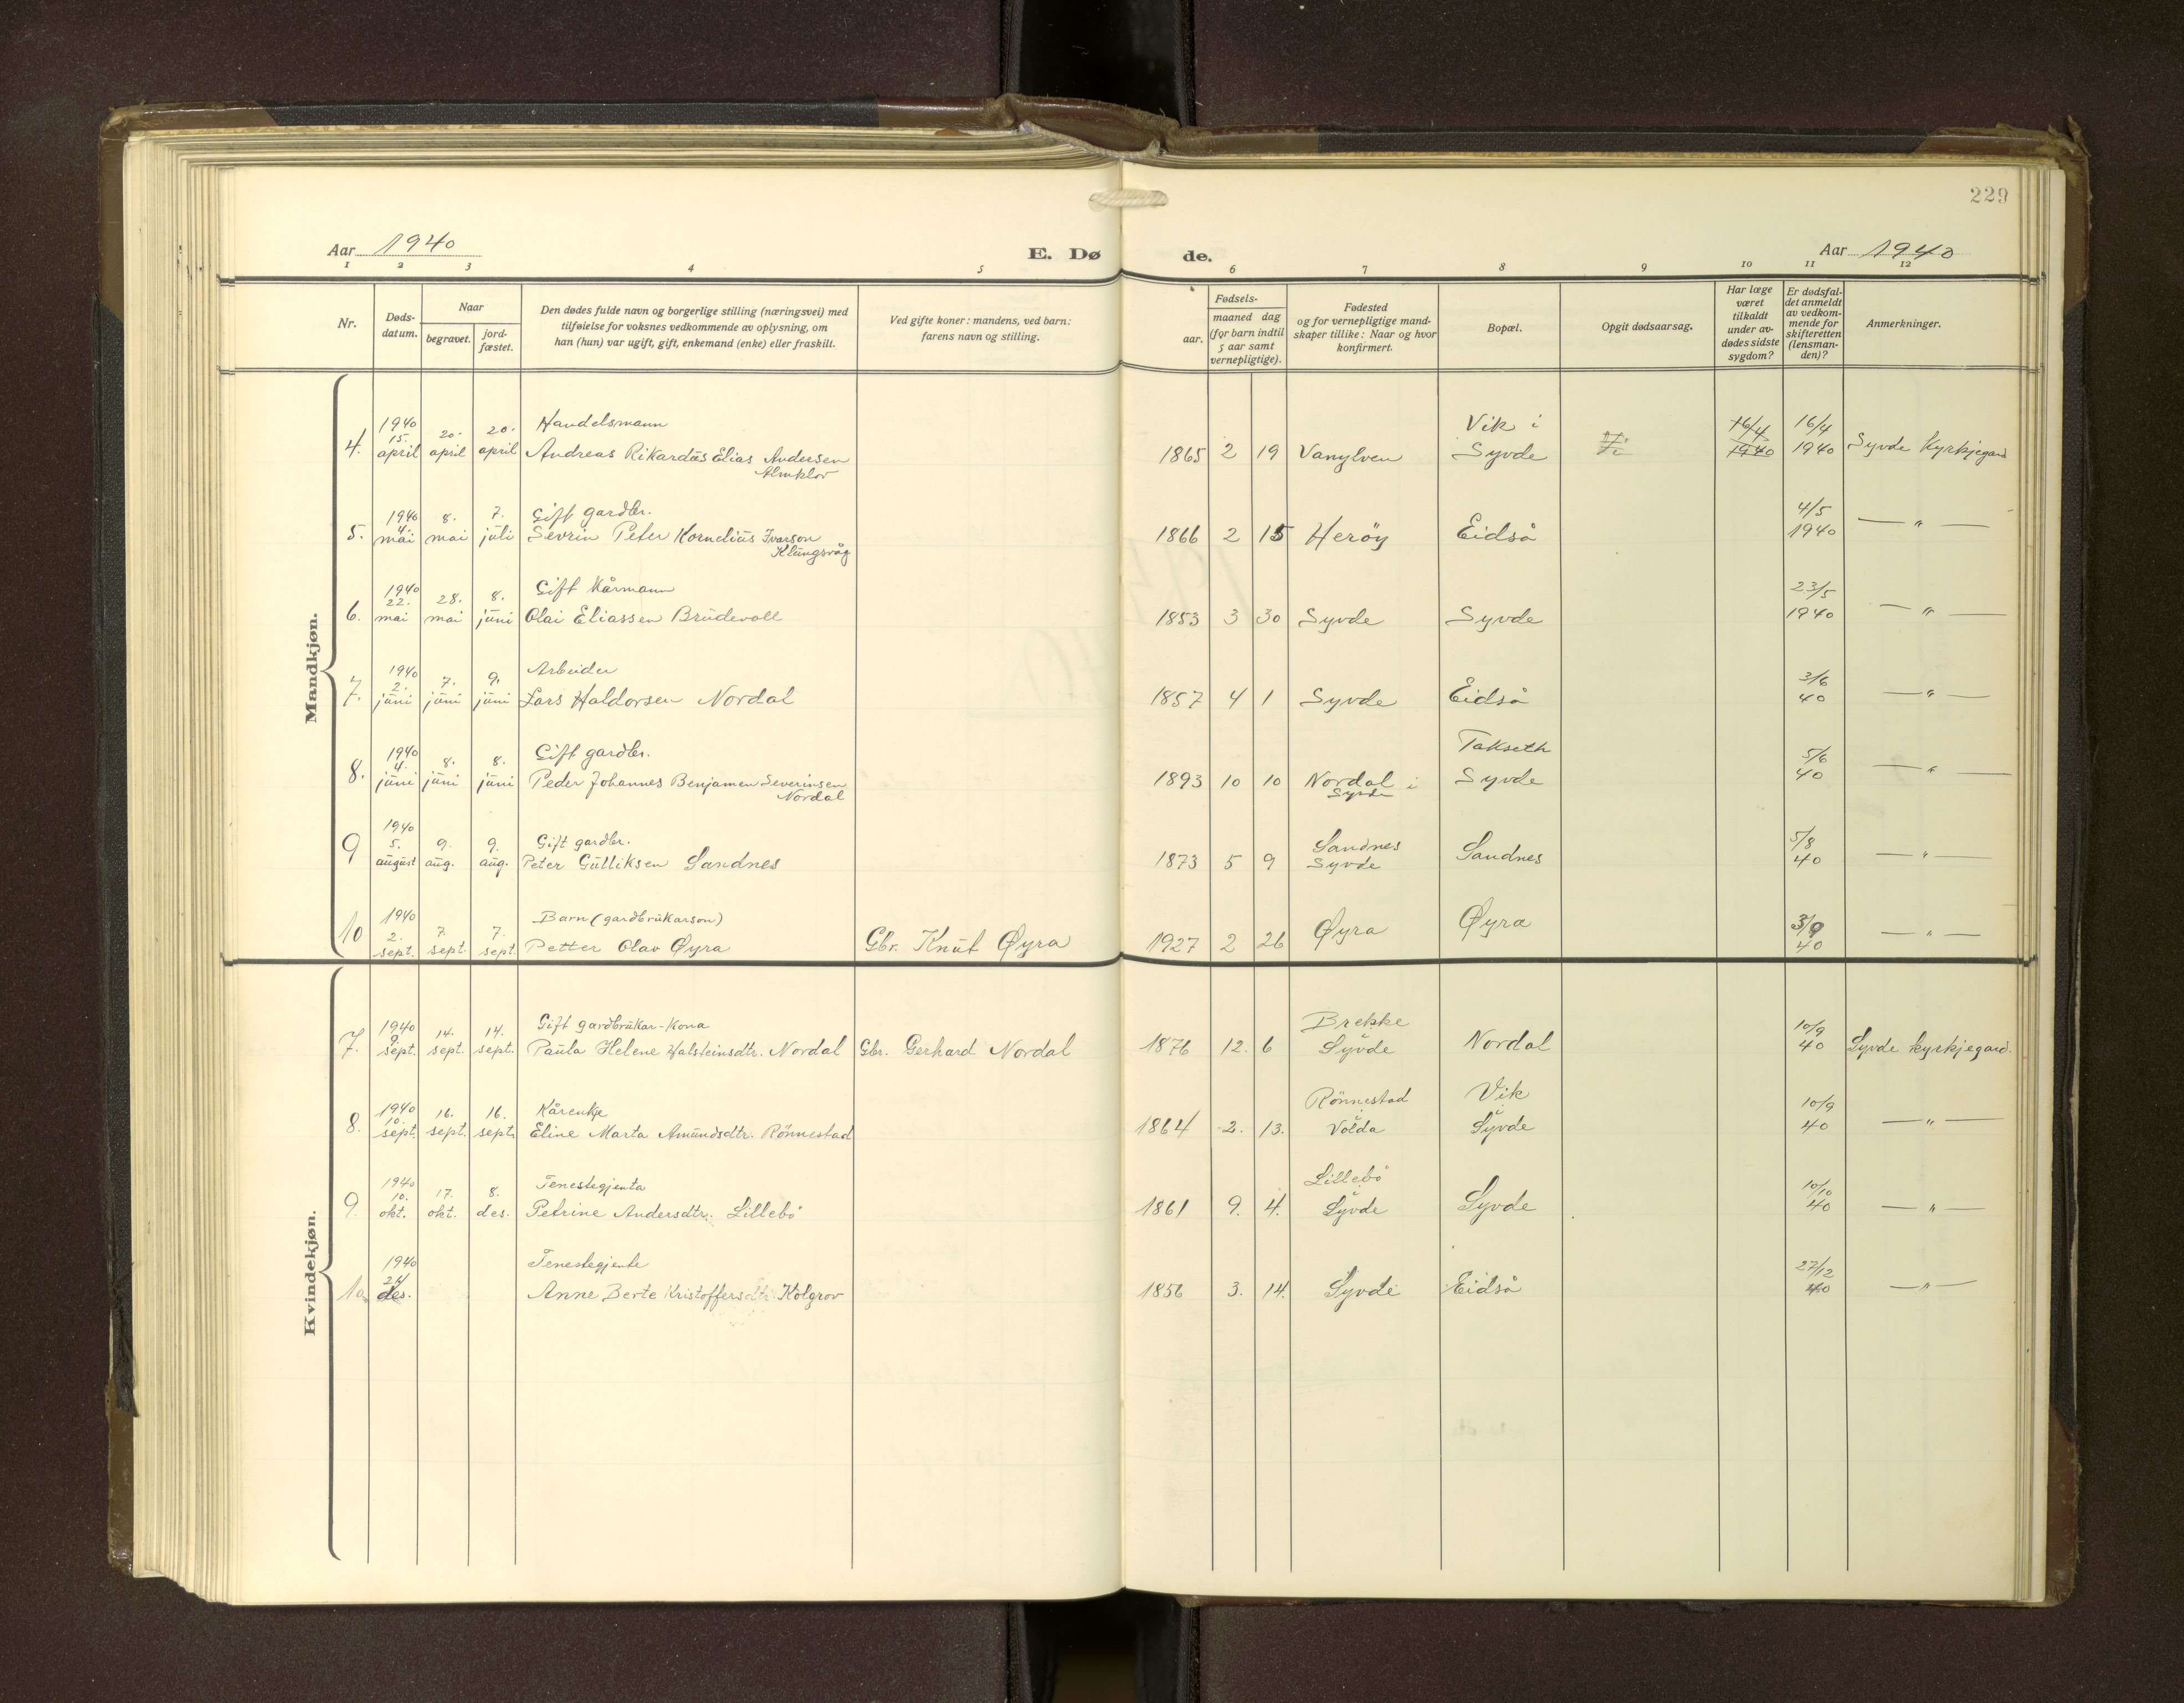 229
Aar 1940
E. Døde.
Aar 1940
1 2 3 4 5 6 7 8 9 10 11 12
Nr.
Døds-
datum.
Naar
begravet.
jord-
fæstet.
Den dødes fulde navn og borgerlige stilling (næringsvei) med
tilføielse for voksnes vedkommende av oplysning, om
han (hun) var ugift, gift, enkemand (enke) eller fraskilt.
Ved gifte koner: mandens, ved barn:
farens navn og stilling.
Fødsels-
aar.
maaned dag
(for barn indtil
5 aar samt
vernepligtige).
Fødested
og for vernepligtige mand-
skaper tillike: Naar og hvor
konfirmert.
Bopæl.
Opgit dødsaarsag.
Har læge
været
tilkaldt
under av-
dødes sidste
sygdom?
Er dødsfal-
det anmeldt
av vedkom-
mende for
skifteretten
(lensman-
den)?
Anmerkninger.
Mandkjøn.
1940 Handelsmann Vik i 16/4 16/4
4. 15. april 20. april 20. april Andreas Rikardus Elias Andersen 1865 2 19 Vanylven Syvde 1940 1940 Syvde Kyrkjegard
Almklov
1940 Gift gardbr. 4/5
5. 4. mai 8. mai 7. juli Sevrin Peter Kornelius Ivarson 1866 2 15 Herøy Eidså 1940 — " —
Klungsvåg
1940 Gift Kårmann 23/5
6. 22. mai 28. mai 8. juni Olai Eliassen Brudevoll 1853 3 30 Syvde Syvde 1940 — " —
1940 Arbeider 3/6
7. 2. juni 7. juni 9. juni Lars Haldorsen Nordal 1857 4 1 Syvde Eidså 40 — " —
1940 Gift gardbr. Takseth 5/6
8. 4. juni 8. juni 8. juni Peder Johannes Benjamen Severinsen 1893 10 10 Nordal i Syvde 40 — " —
Nordal Syvde
1940 Gift gardbr. Sandnes 5/8
9 5. august 9. aug. 9. aug. Peter Gulliksen Sandnes 1873 5 9 Syvde Sandnes 40 — " —
1940 Barn (gardbrukarson) 3/9
10 2. sept. 7. sept. 7. sept. Petter Olav Øyra Gbr. Knut Øyra 1927 2 26 Øyra Øyra 40 — " —
Kvindekjøn.
1940 Gift gardbrukar-kona Brekke i 10/9
7. 9. sept. 14. sept. 14. sept. Paula Helene Halsteinsdtr. Nordal Gbr. Gerhard Nordal 1876 12. 6 Syvde Nordal 40 Syvde kyrkjegard.
1940 Kårenkje Rönnestad i Vik i 10/9
8. 10. sept. 16. sept. 16. sept. Eline Marta Amundsdtr. Rönnestad 1864 2. 13. Volda Syvde 40 — " —
1940 Tenestegjenta Lillebö i 10/10
9. 10. okt. 17. okt. 8. des. Petrine Andersdtr. Lillebö 1861 9. 4. Syvde Syvde 40 — " —
1940 Tenestegjente 27/12
10. 24 des. Anne Berte Kristoffersdtr. Kolgrov 1856 3. 14. Syvde Eidså 40 — " —